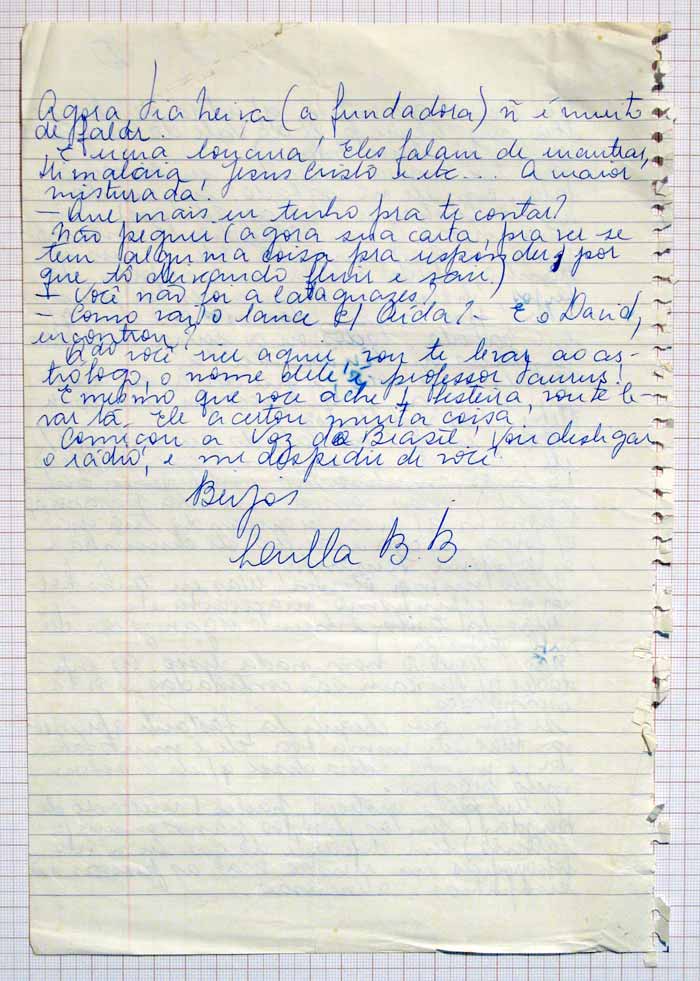 Agora tia Neiva (a fundadora) ñ é muito
de falar.
É uma loucura! Eles falam de mantras,
Himalaia, Jesus Cristo e etc... A maior
misturada!
— Que mais eu tenho pra te contar?
Não peguei (agora sua carta, pra ver se
tem alguma coisa pra responder, por
que tô deixando fluir e sair)
— Você não foi a Cataguazes?
— Como vai o lance c/ Cida? — E o David,
encontrou?
você vier aqui vou te levar ao as-
trólogo, o nome dele é professor Taurus!
E mesmo que você ache besteira, vou te le-
var lá. Ele acertou muita coisa!
Começou a Voz do Brasil! Vou desligar
o rádio, e me despedir de você
Beijos
B. B.